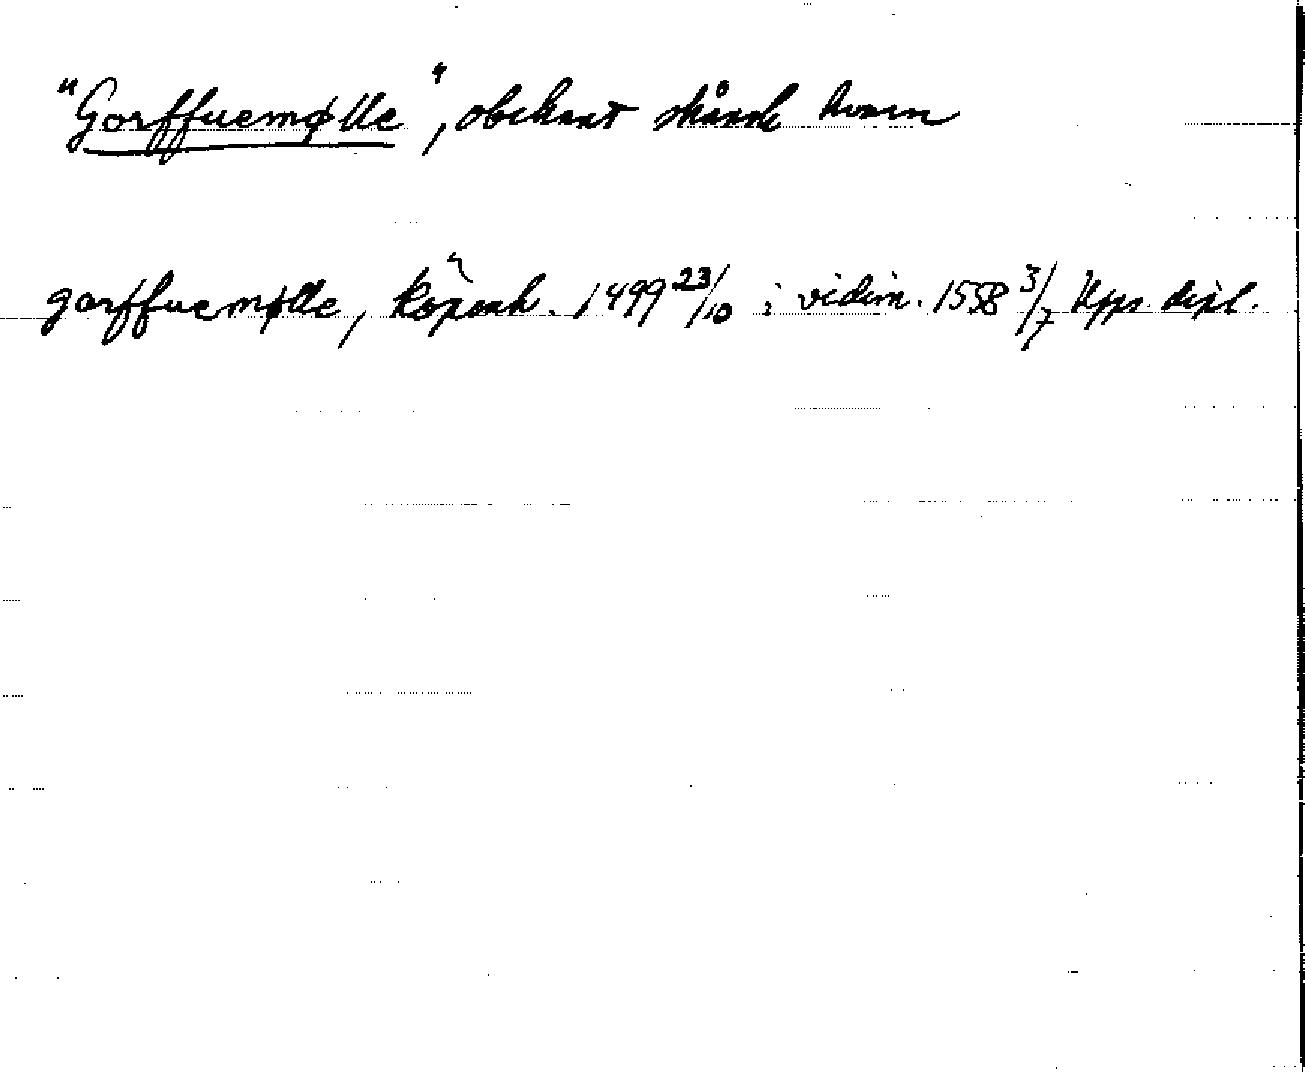 "Gorffuemølle", obekant skånsk kvarn
gorffuemølle, Köpenh. 1499 23/10 i vidim. 1558 3/7 Upps. dipl.